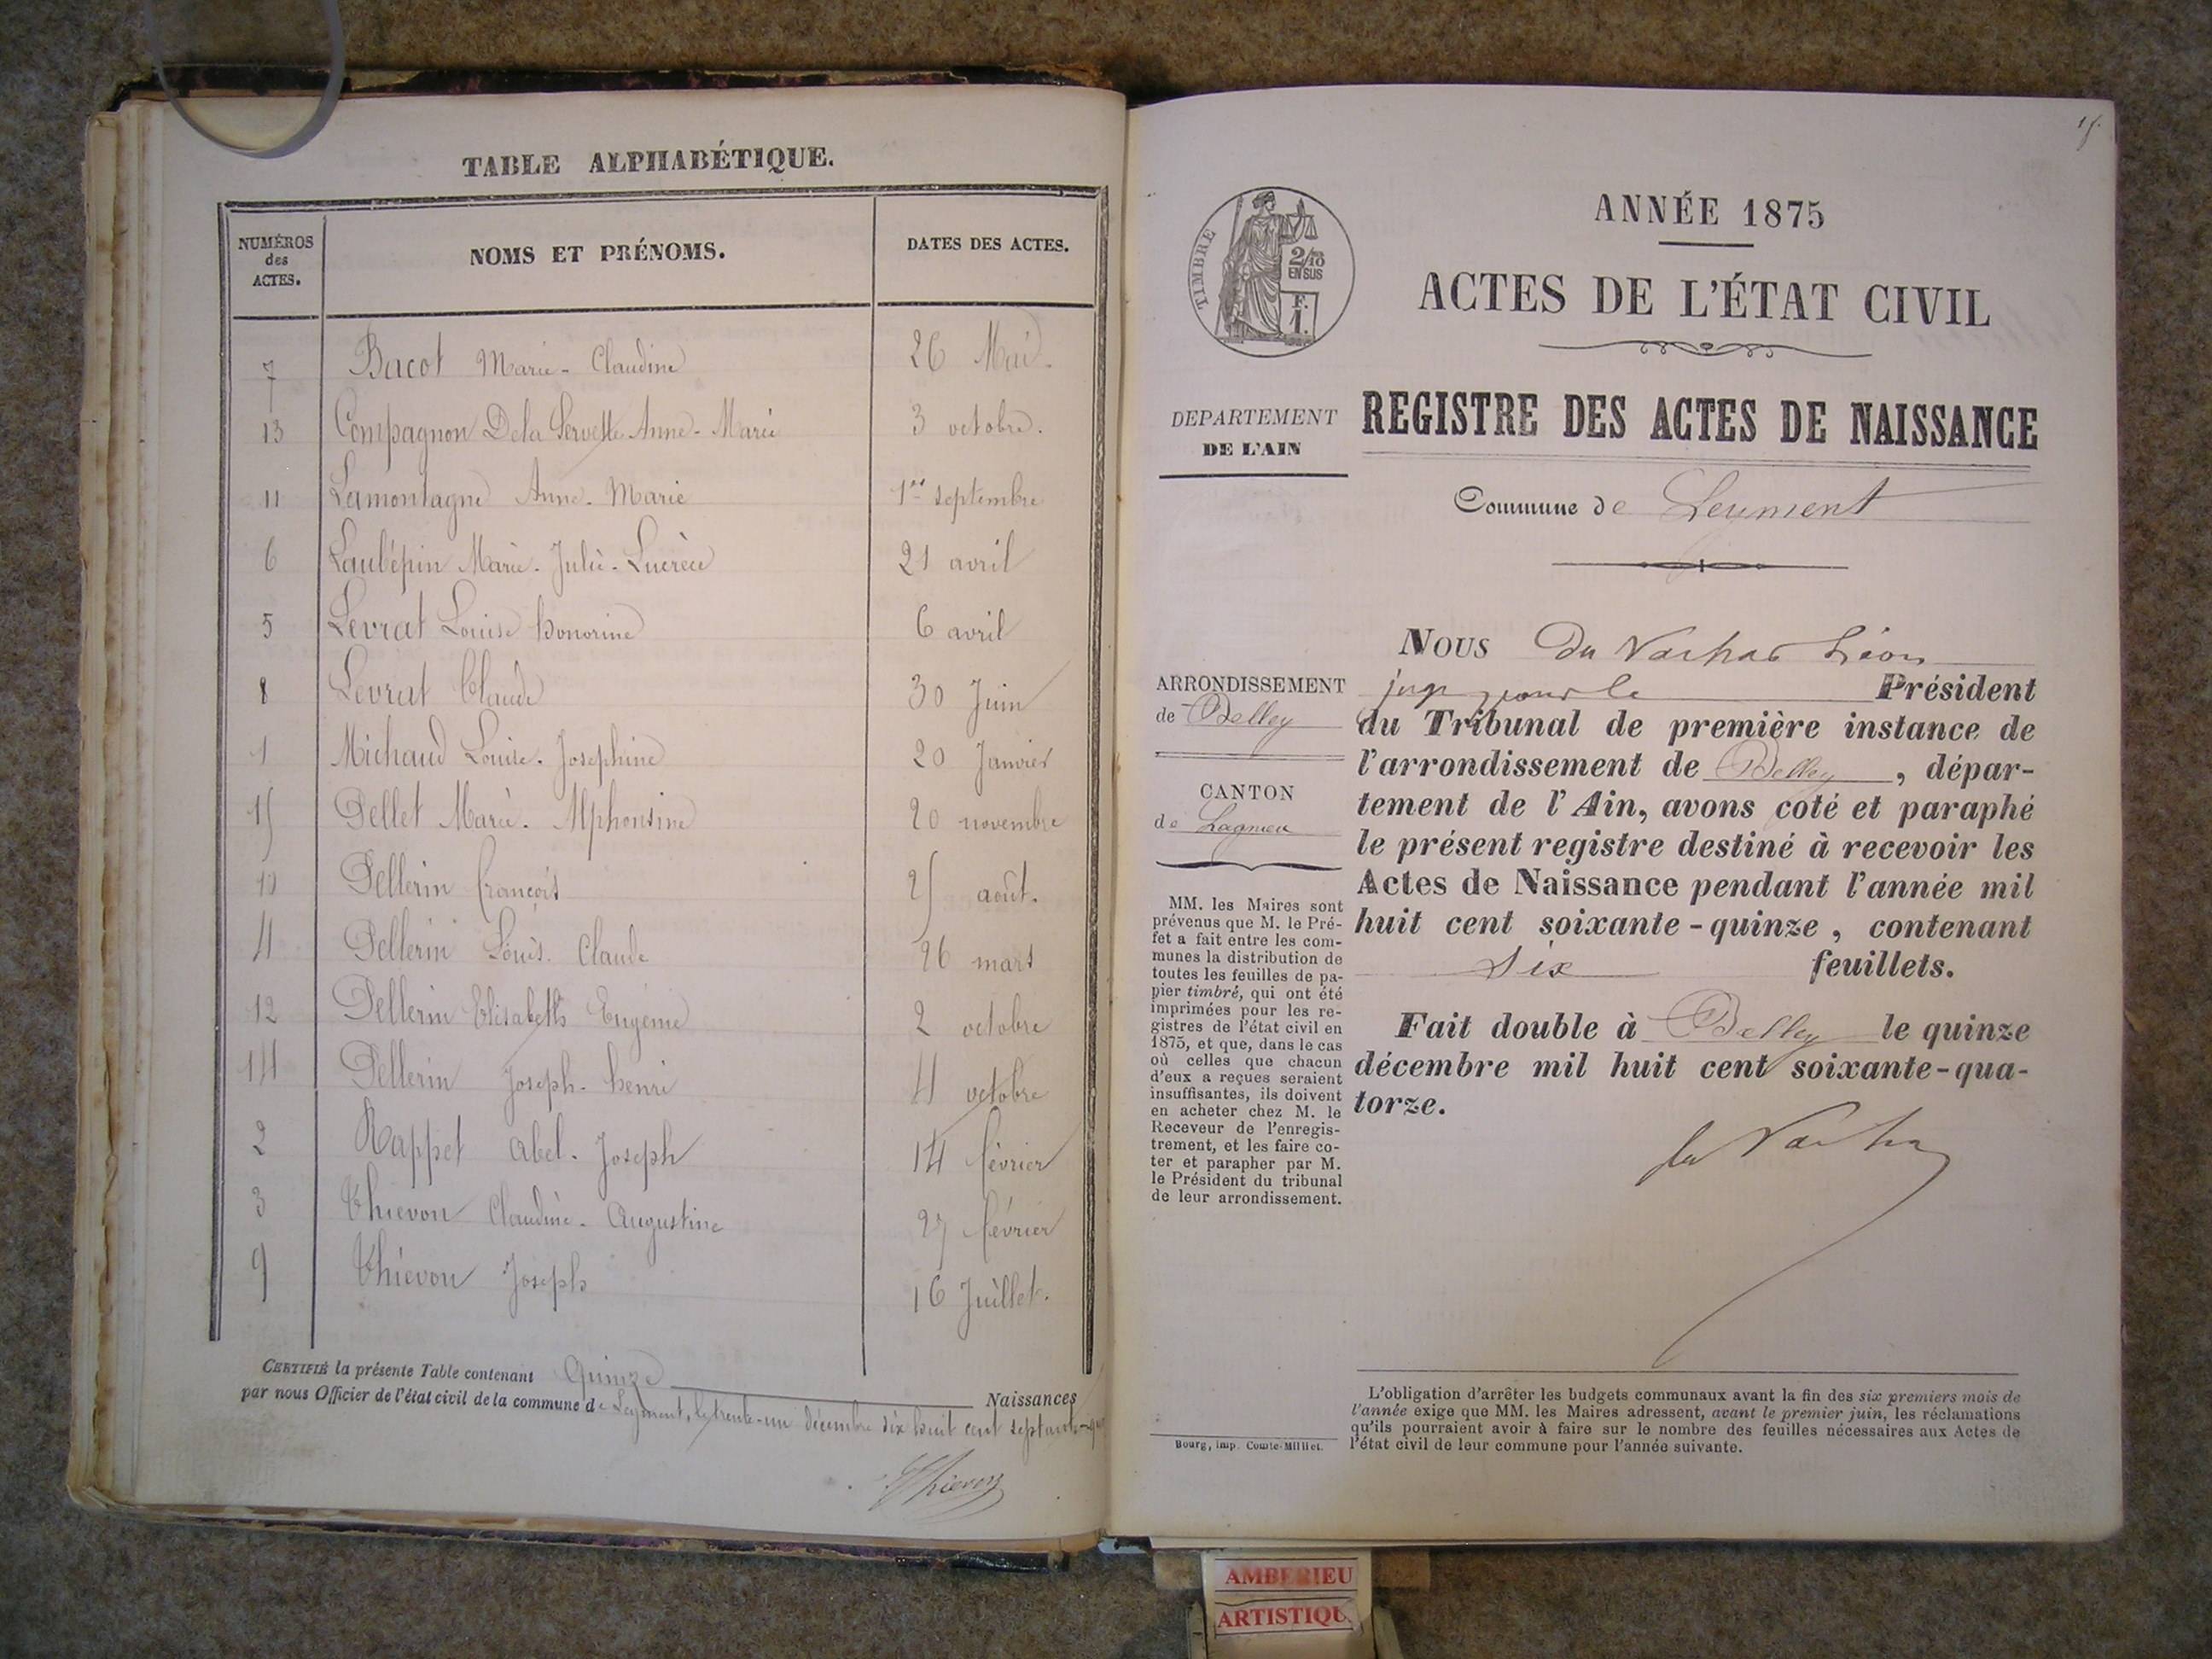 TABLE ALPHABÉTIQUE.
NUMÉROS des ACTES. NOMS ET PRÉNOMS. DATES DES ACTES.
7 Bacot Marie-Claudine 26 Mai
13 Compagnon De la Servette Anne-Marie 3 octobre.
11 Lamontagne Anne-Marie 1er septembre
6 Laubépin Marie-Julie-Lucrèce 21 avril
5 Levrat Louise honorine 6 avril
8 Levrat Claude 30 Juin
1 Michaud Louise-Josephine 20 Janvier
15 Pellet Marie-Alphonsine 20 novembre
10 Pellerin françois 25 août.
4 Pellerin Louis-Claude 26 mars
12 Pellerin Elisabeth Eugénie 2 octobre
14 Pellerin Joseph-henri 4 octobre
2 Rappet Abel-Joseph 14 février
3 Thievon Claudine-Augustine 27 février
9 Thievon Joseph 16 Juillet.
CERTIFIÉ la présente Table contenant Quinze Naissances
par nous Officier de l'état civil de la commune de Leyment, le trente-un décembre dix huit cent septante-
Thievon
15
TIMBRE
2/10
EN SUS
F.
1.
ANNÉE 1875
ACTES DE L'ÉTAT CIVIL
DEPARTEMENT
DE L'AIN
REGISTRE DES ACTES DE NAISSANCE
Commune de Leyment
ARRONDISSEMENT
de Belley
CANTON
de Lagnieu
MM. les Maires sont
prévenus que M. le Pré-
fet a fait entre les com-
munes la distribution de
toutes les feuilles de pa-
pier timbré, qui ont été
imprimées pour les re-
gistres de l'état civil en
1875, et que, dans le cas
où celles que chacun
d'eux a reçues seraient
insuffisantes, ils doivent
en acheter chez M. le
Receveur de l'enregis-
trement, et les faire co-
ter et parapher par M.
le Président du tribunal
de leur arrondissement.
Bourg, imp. Comte-Milliet.
NOUS Du Léon
juge pour le Président
du Tribunal de première instance de
l'arrondissement de Belley, dépar-
tement de l'Ain, avons coté et paraphé
le présent registre destiné à recevoir les
Actes de Naissance pendant l'année mil
huit cent soixante-quinze, contenant
six feuillets.
Fait double à Belley le quinze
décembre mil huit cent soixante-qua-
torze.
L'obligation d'arrêter les budgets communaux avant la fin des six premiers mois de
l'année exige que MM. les Maires adressent, avant le premier juin, les réclamations
qu'ils pourraient avoir à faire sur le nombre des feuilles nécessaires aux Actes de
l'état civil de leur commune pour l'année suivante.
AMBERIEU
ARTISTIQU